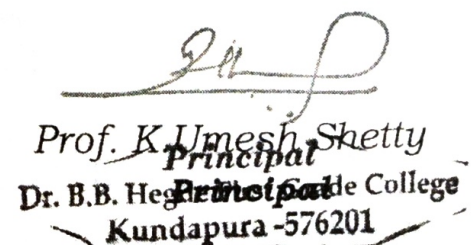 Prof. K.Umesh Shetty
Principal
Principal
Dr. B.B. Heg de College
Kundapura -576201